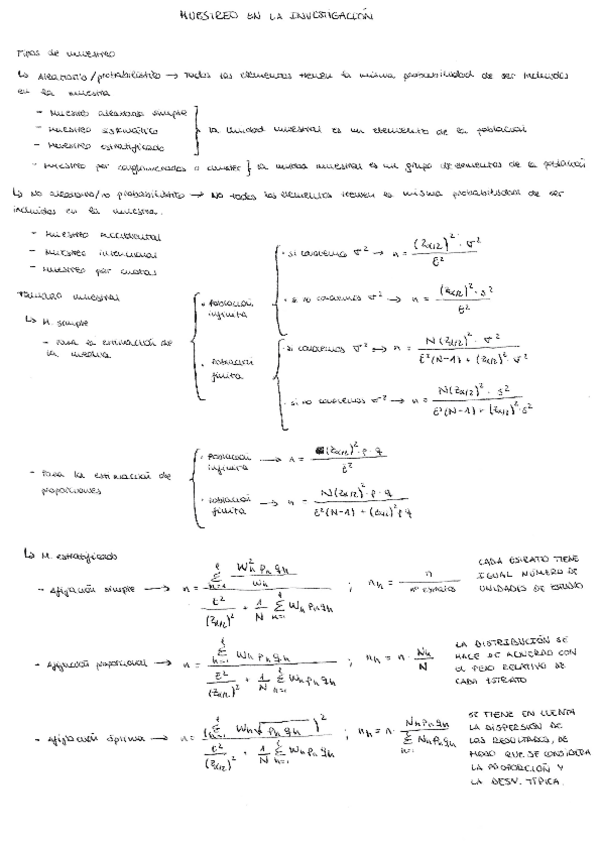 MUESTREO EN LA INVESTIGACIÓN
Tipos de muestreo
↳ Aleatorio/probabilístico → Todos los elementos tienen la misma probabilidad de ser incluidos
en la muestra
- Muestreo aleatorio simple
- Muestreo sistemático
- Muestreo estratificado
} la unidad muestral es un elemento de la población
- Muestreo por conglomerados o cluster } la unidad muestral es un grupo de elementos de la población
↳ No aleatorio/no probabilístico → No todos los elementos tienen la misma probabilidad de ser
incluidos en la muestra.
- Muestreo accidental
- Muestreo intencional
- Muestreo por cuotas
Tamaño muestral
↳ M. simple
- Para la estimación de
la media
· Población
infinita
· si conocemos σ² → n = (Zα/2)² · σ² / E²
· si no conocemos σ² → n = (Zα/2)² · s² / E²
· Población
finita
· si conocemos σ² → n = N(Zα/2)² · σ² / E²(N-1) + (Zα/2)² · σ²
· si no conocemos σ² → n = N(Zα/2)² · s² / E²(N-1) + (Zα/2)² · s²
- Para la estimación de
proporciones
· Población
infinita → n = (Zα/2)² · p · q / E²
· Población
finita → n = N(Zα/2)² · p · q / E²(N-1) + (Zα/2)² p q
↳ M. estratificado
- Afijación simple → n = Σ Wh² ph qh / wh / E²/(Zα/2)² + 1/N Σ Wh ph qh ; nh = n / nº estratos
CADA ESTRATO TIENE
IGUAL NÚMERO DE
UNIDADES DE ESTUDIO
- Afijación proporcional → n = Σ Wh ph qh / E²/(Zα/2)² + 1/N Σ Wh ph qh ; nh = n · Nh/N
LA DISTRIBUCIÓN SE
HACE DE ACUERDO CON
EL PESO RELATIVO DE
CADA ESTRATO
- Afijación óptima → n = (Σ Wh √ph qh)² / E²/(Zα/2)² + 1/N Σ Wh ph qh ; nh = n · Nh ph qh / Σ Nh ph qh
SE TIENE EN CUENTA
LA DISPERSIÓN DE
LOS RESULTADOS, DE
MODO QUE SE CONSIDERA
LA PROPORCIÓN Y
LA DESV. TÍPICA.